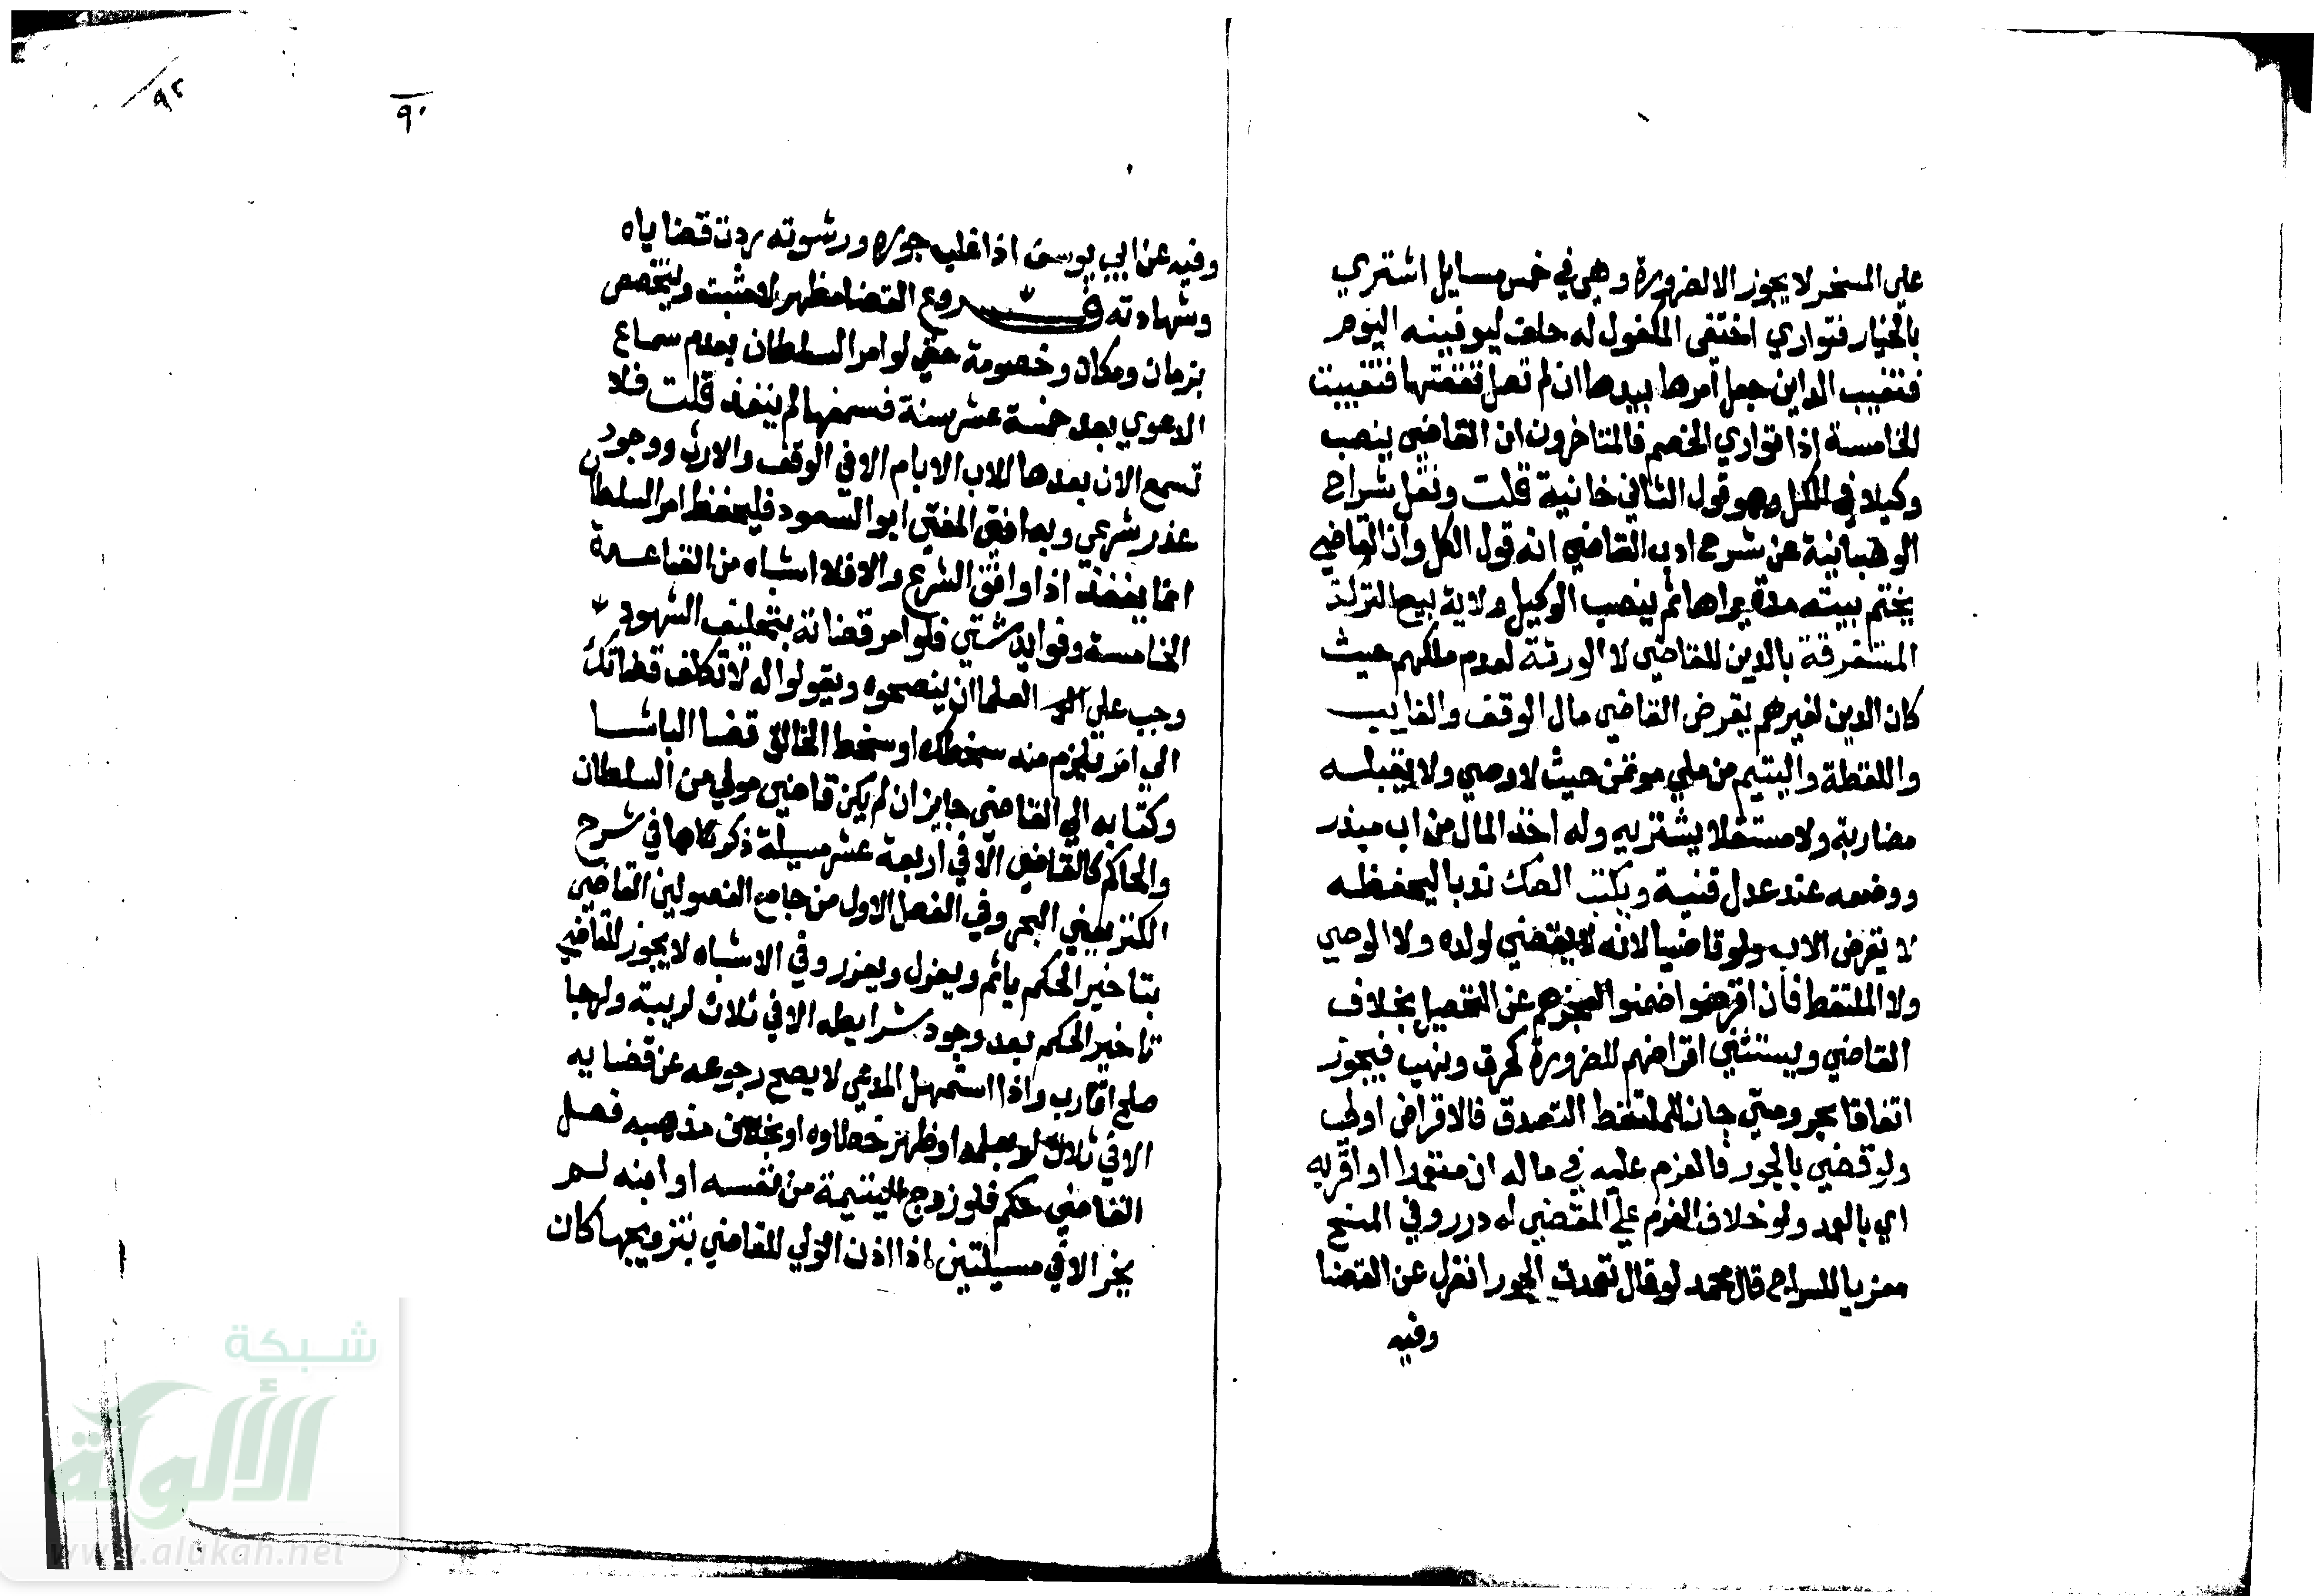 على المسخر لا يجوز الا لضرورة وهي في خمس مسايل اشتري
بالخيار فتواري اختفى المكفول له حلف ليوفينه اليوم
فتغيب الداين جعل امرها بيدها ان لم تصل نفقتها فتغيبت
الخامسة اذا تواري الخصم فالمتاخرون ان القاضي ينصب
وكيلا في الكل وهو قول الثاني خانية قلت ونقل شراح
الوهبانية عن شرح ادب القاضي انه قول الكل وان القاضي
يختم بيته مدة يراها ثم ينصب الوكيل ولاية بيع التركة
المستغرقة بالدين للقاضي لا الورثة لعدم ملكهم حيث
كان الدين لغيرهم يقرض القاضي مال الوقف والغايب
واللقطة واليتيم من ملي موتمن حيث لا وصي ولا يقبله
مضاربة ولا مستغلا يشتريه وله اخذ المال من اب مبذر
ووضعه عند عدل قنية ويكتب الصك ندبا ليحفظه
لا يقرض الاب ولو قاضيا لانه لا يقضي لولده ولا الوصي
ولا الملتقط فان اقرضوا ضمنوا لعجزهم عن التحصيل بخلاف
القاضي ويستثني اقراضهم للضرورة كحرق ونهب فيجوز
اتفاقا بحر ومتي جاز للملتقط التصدق فالاقراض اولي
ولو قضي بالجور فالغرم عليه في ماله ان متعمدا او اقر به
اي بالعمد ولو خلاف الغرم علي المقضي له درر وفي المنح
معزيا للسراج قال محمد لو قال تعمدت الجور انعزل عن القضا
وفيه
٩٢
٩٠
وفيه عن ابي يوسف اذا غلب جوره ورشوته ردت قضاياه
وشهادته فروع القضا مظهر لا مثبت ويتخصص
بزمان ومكان وخصومة حتي لو امر السلطان بعدم سماع
الدعوي بعد خمسة عشر سنة فسمعها لم ينفذ قلت فلا
تسمع الان بعدها الا بامر الا في الوقف والارث ووجود
عذر شرعي وبه افتي المفتي ابو السعود فليحفظ امر السلطان
انما ينفذ اذا وافق الشرع والا فلا اشباه من القاعدة
الخامسة وفوايد شتي فلو امر قضاته بتحليف الشهود
وجب علي العلما ان ينصحوه ويقولوا له لا تكلف قضاتك
الي امر يلزم منه سخطك او سخط الخالق قضا الباشا
وكتابه الي القاضي جايز ان لم يكن قاضي مولي من السلطان
والحاكم كالقاضي الا في اربعة عشر مسيلة ذكرناها في شرح
الكنز يعني البحر وفي الفصل الاول من جامع الفصولين القاضي
بتاخير الحكم ياثم ويعزل ويعزر وفي الاشباه لا يجوز للقاضي
تاخير الحكم بعد وجود شرايطه الا في ثلاث لريبة ولرجا
صلح اقارب واذا استمهل المدعي لا يصح رجوعه عن قضايه
الا في ثلاث لو بعلمه او ظهر خطاوه او بخلاف مذهبه فعل
القاضي حكم فلو زوج اليتيمة من نفسه او ابنه لم
يجز الا في مسيلتين اذا اذن الولي للقاضي بتزويجها كان
شبكة
الألوكة
www.alukah.net